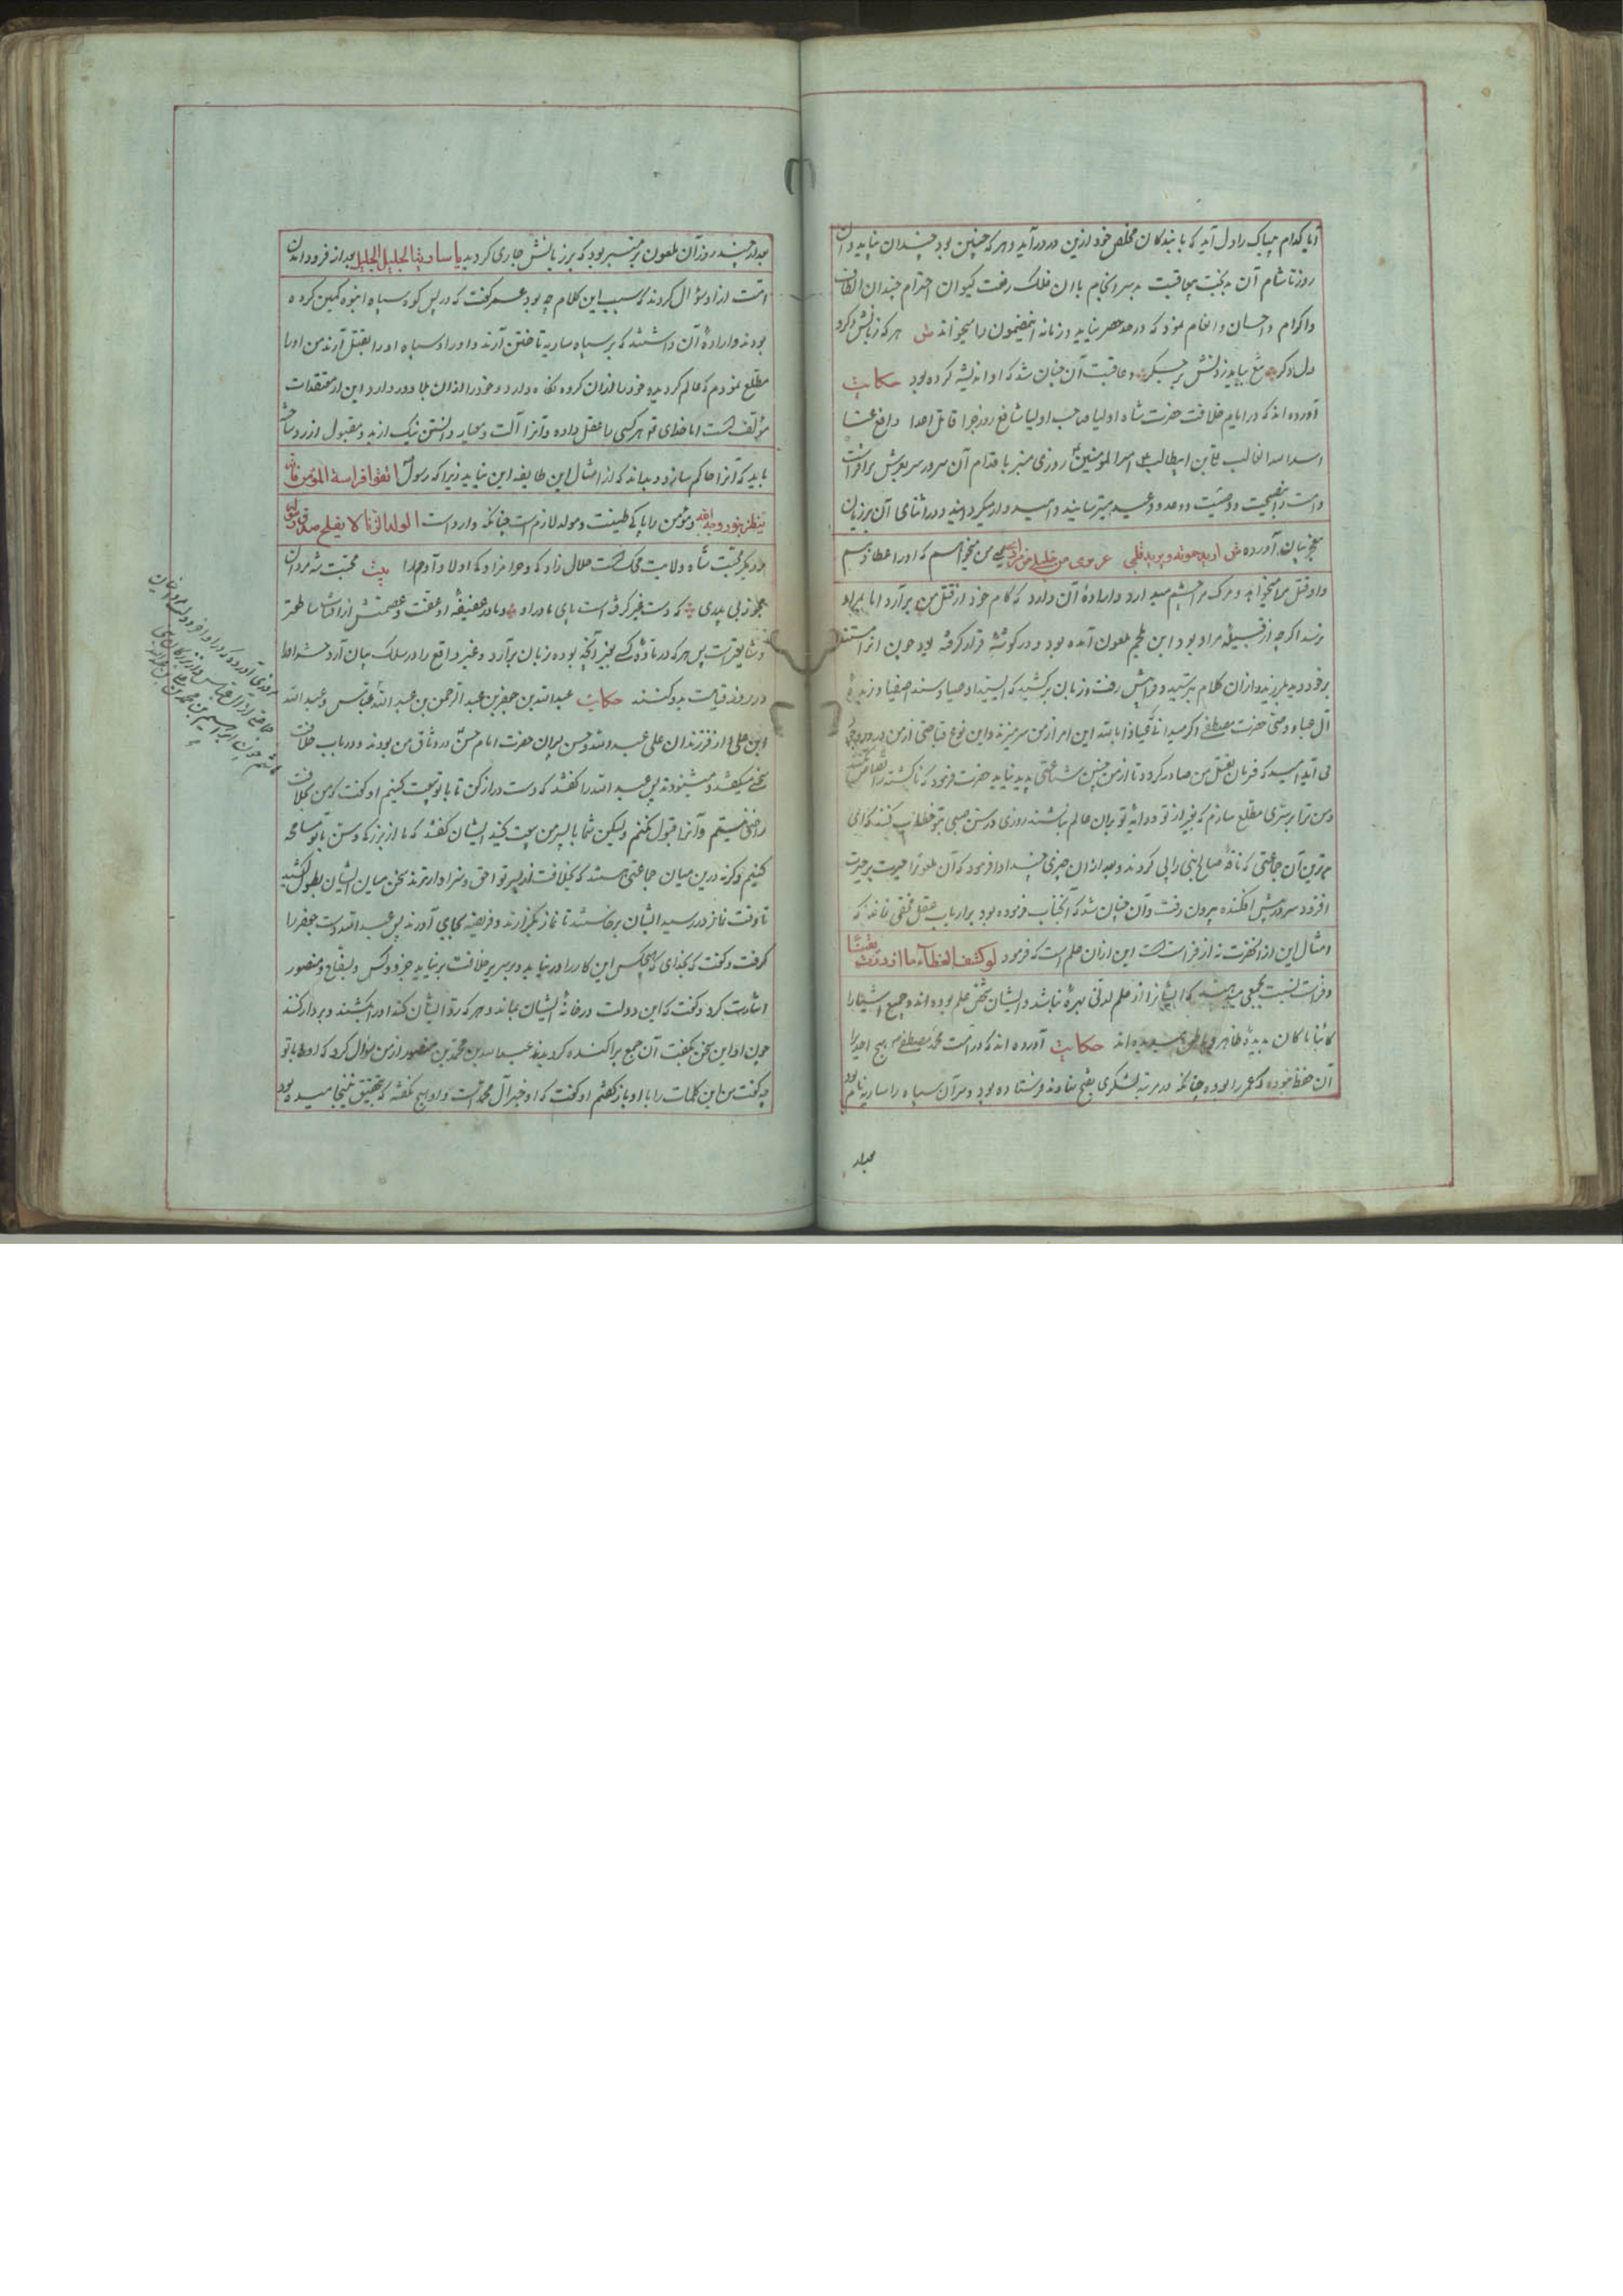 اما کدام بیباک را دل آید که با بندگان مخلص خود ازین در درآید و هر که چنین بود چندان نپاید و آن
روز تا شام آن بدبخت بیعاقبت بد سرانجام با آن فلک رفعت کیوان احترام چندان الطاف
و اکرام و احسان و انعام نمود که در حد حصر نیاید و زمانه این مضمون را میخواند ش هر که زبانش دگر
دل دگر تیغ بباید زدنش بر جگر و عاقبت آن چنان شد که او اندیشه کرده بود حکایت
آورده اند که در ایام خلافت حضرت شاه اولیا صاحب اولیا شافع روز جزا قاتل اعدا دافع
اسد الله الغالب علی بن ابیطالب امیر المومنین روزی منبر باقدام آن سرور سر بعرش برافراشت
و امت را بنصیحت و وصیت و وعد و وعید میترسانید و امیدوار میگردانید و در اثنای آن بر زبان
معجز بیان آورده ش ارید حیوته و یرید قتلی عذیری من خلیلی من مراد یعنی من میخواهم که او را عطا دهم
و او قتل مرا میخواهد و مرگ مرا چشم میدارد و اراده آن دارد که کام خود از قتل من برآرد اما بمراد
نرسد اگرچه از قبیله مراد بود ابن ملجم ملعون آمده بود و در گوشه قرار گرفته بود چون این را شنید
بر خود بلرزید و از آن کلام بترسید و پیش رفت و زبان برکشید که ای سید اوصیا و سند اصفیا و زبده
آل عبا و وصی حضرت مصطفی اگر میدانی که عیاذا بالله این امر از من سر میزند و این نوع قباحتی از من در وجود
می آید امید که فرمان بقتل من صادر گردد تا از من چنین شناعتی پدید نیاید حضرت فرمود که ناکشته را قصاص نکنند
و من ترا بر سری مطلع سازم که بغیر از تو و دایه تو بران عالم نباشند روزی در سن صبی بتو خطاب کنند که ای
بدترین آن جماعتی که ناقه صالح نبی را پی کردند و بعد از آن چیزی چند ادا فرمود که آن ملعونرا حیرت بر حیرت
افزود سر در پیش افکنده بیرون رفت و آن چنان شد که آنجناب فرموده بود بر ارباب عقل مخفی نماند که
امثال این از آنحضرت نه از فراست است این از آن علم است که فرمود لو کشف الغطاء ما ازددت یقینا
و فراست نسبت بجمعی میدهند که ایشانرا از علم لدنی بهره نباشد و ایشان مخزن علم بوده اند و جمیع اشیا را
کائنا ما کان بدیده ظاهر و باطن میدیده اند حکایت آورده اند که در امت محمد مصطفی هیچ احدیرا
آن حفظ نبوده که عمر را بوده چنانکه در مرتبه لشکری بفتح نهاوند فرستاده بود و سر آن سپاه را ساریه نام بود
بعد از
بعد از چند روز آن ملعون بر منبر بود که بر زبانش جاری گردید یا ساریة الجلیل الجلیل بعد از فرود آمدن
امت از او سؤال کردند که سبب این کلام چه بود عمر گفت که در پس کوه سپاه انبوه کمین کرده
بودند و اراده آن داشتند که بر سپاه ساریه تاختن آرند و او را و سپاه او را بقتل آرند من او را
مطلع نمودم که عالم گردیده خود را از آن گروه نگاه دارد و خود را از آن بلا دور دارد این از معتقدات
مؤلف است اما خدای تع هر کسی را عقل داده و آنرا آلت و معیار دانستن نیک از بد و مقبول از رد ساخته
باید که آنرا حاکم سازد و بداند که از امثال این طایفه این نیاید زیرا که رسول اتقوا فراسة المؤمن فانه
ینظر بنور وجه الله و مؤمن را پاکی طینت و مولد لازم است چنانکه وارد است الولد الزنا لا یفلح صدق رسول الله
و دیگر محبت شاه ولایت محک است حلال زاد که و حرامزاد که اولاد آدم را بیت محبت شه مردان
مجو ز بی پدری که دست غیر گرفته است پای مادر او و مادر عفیفه او عفت و عصمتش از آفتاب ساطعتر
و شایعتر است پس هر که در ماده کسی بغیر آنچه بوده زبان برآرد و غیر واقع را در سلک بیان آرد
در روز قیامت بد و کنند حکایت عبدالله بن جعفر بن عبد الرحمن بن عبد الله عباس و عبد الله
ابن علی و از فرزندان علی عبد الله و حسن پسران حضرت امام حسن در وثاق من بودند و در باب خلافت
سخنی میگفتند و میشنودند پس عبد الله را گفتند که دست دراز کن تا با تو بیعت کنیم او گفت که من بخلافت
راضی نیستم و آنرا قبول نکنم ولیکن شما با پسر من بیعت کنید ایشان گفتند که ما از بزرگه و سن با تو مسامحه
کنیم و گرنه درین میان جماعتی هستند که بخلافت از پسر تو احق و سزاوارترند سخن میان ایشان بطول کشید
تا وقت نماز در رسید ایشان برخاستند تا نماز بگزارند و فریضه بجای آورند پس عبد الله دست جعفر را
گرفت و گفت که بخدای که هیچکس این کار را درنیابد و بر سریر خلافت برنیاید جز دو کس و بسفاح و منصور
اشارت کرد و گفت که این دولت در خانه ایشان بماند و هر که رد ایشان کند او را بکشند و بردار کنند
چون او این سخن بگفت آن جمع پراکنده گردیدند عبدالله بن محمد بن منصور از من سؤال کرد که او با تو
چه گفت من این کلمات را با او باز گفتم او گفت که او خیر آل محمد است و او هیچ نگفته که بتحقیق نینجامیده بود